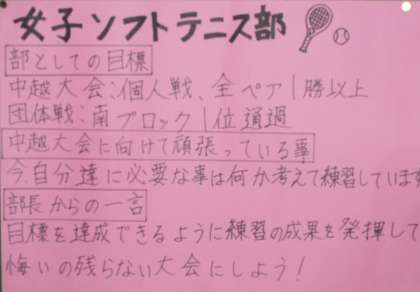 女子ソフトテニス部
部としての目標
中越大会:個人戦、全ペア1勝以上
団体戦:南ブロック1位通過
中越大会に向けて頑張っている事
今、自分達に必要な事は何か考えて練習しています
部長からの一言
目標を達成できるように練習の成果を発揮して
悔いの残らない大会にしよう!